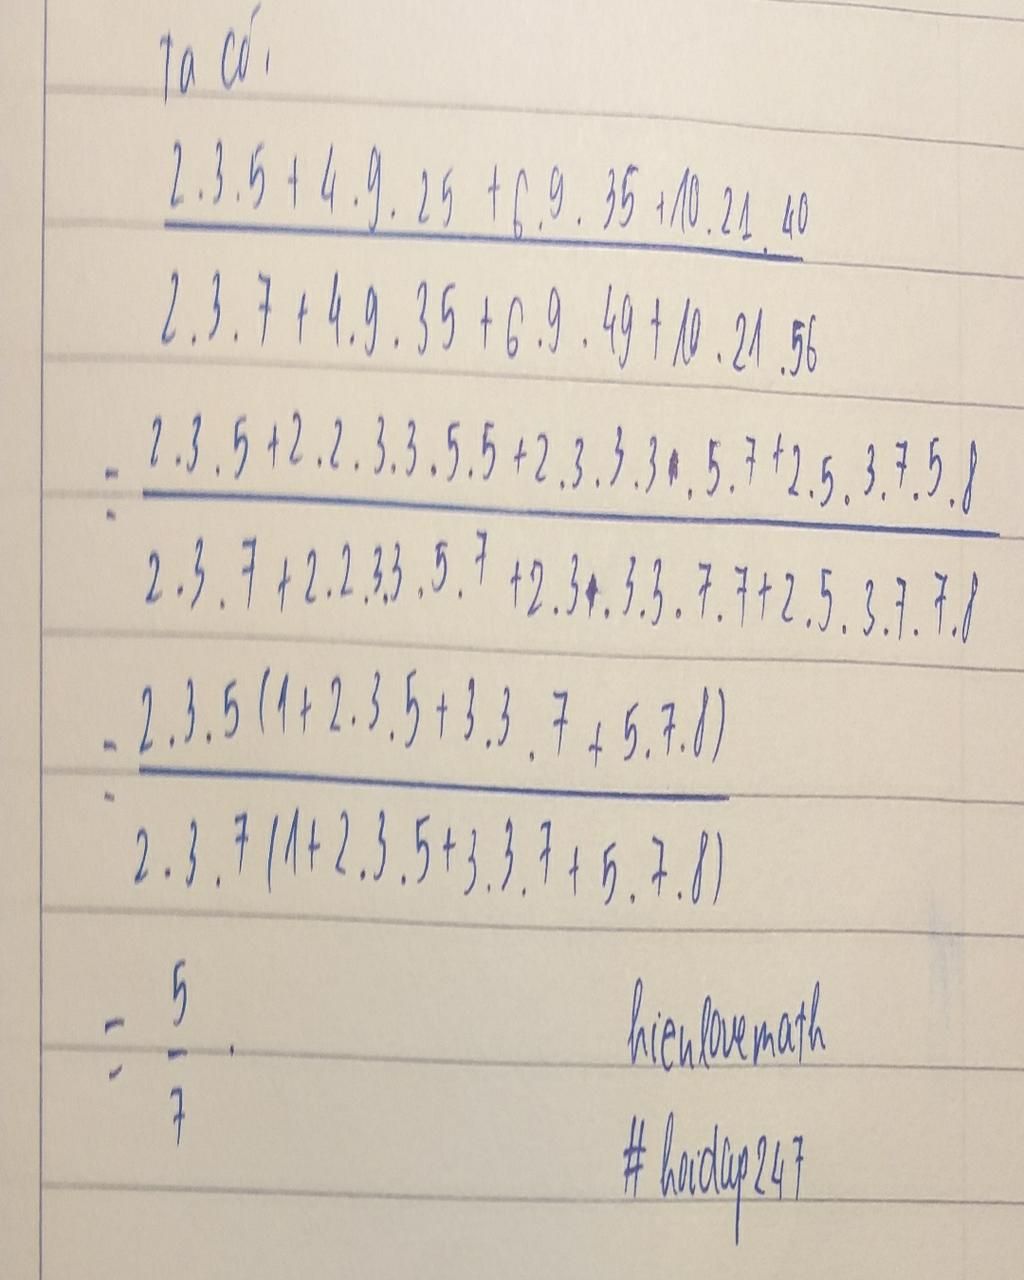 Ta có.
2.3.5 + 4.9.25 + 6.9.35 + 10.21.40
2.3.7 + 4.9.35 + 6.9.49 + 10.21.56
= 2.3.5 + 2.2.3.3.5.5 + 2.3.3.3.5.7 + 2.5.3.7.5.8
2.3.7 + 2.2.3.3.5.7 + 2.3.3.3.7.7 + 2.5.3.7.7.8
= 2.3.5 (1 + 2.3.5 + 3.3.7 + 5.7.8)
2.3.7 (1 + 2.3.5 + 3.3.7 + 5.7.8)
= 5
7 .
hienlovemath
# hoidap247